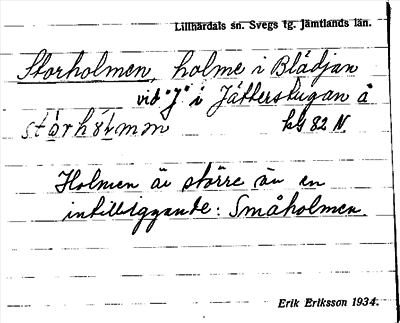 Lillhärdals sn. Svegs tg. Jämtlands län.
Storholmen, holme i Blädjan
vid "J" i Jätterstugan å
stòrhólmm kbl 82 N.
Holmen är större än en
intilliggande: Småholmen.
Erik Eriksson 1934.